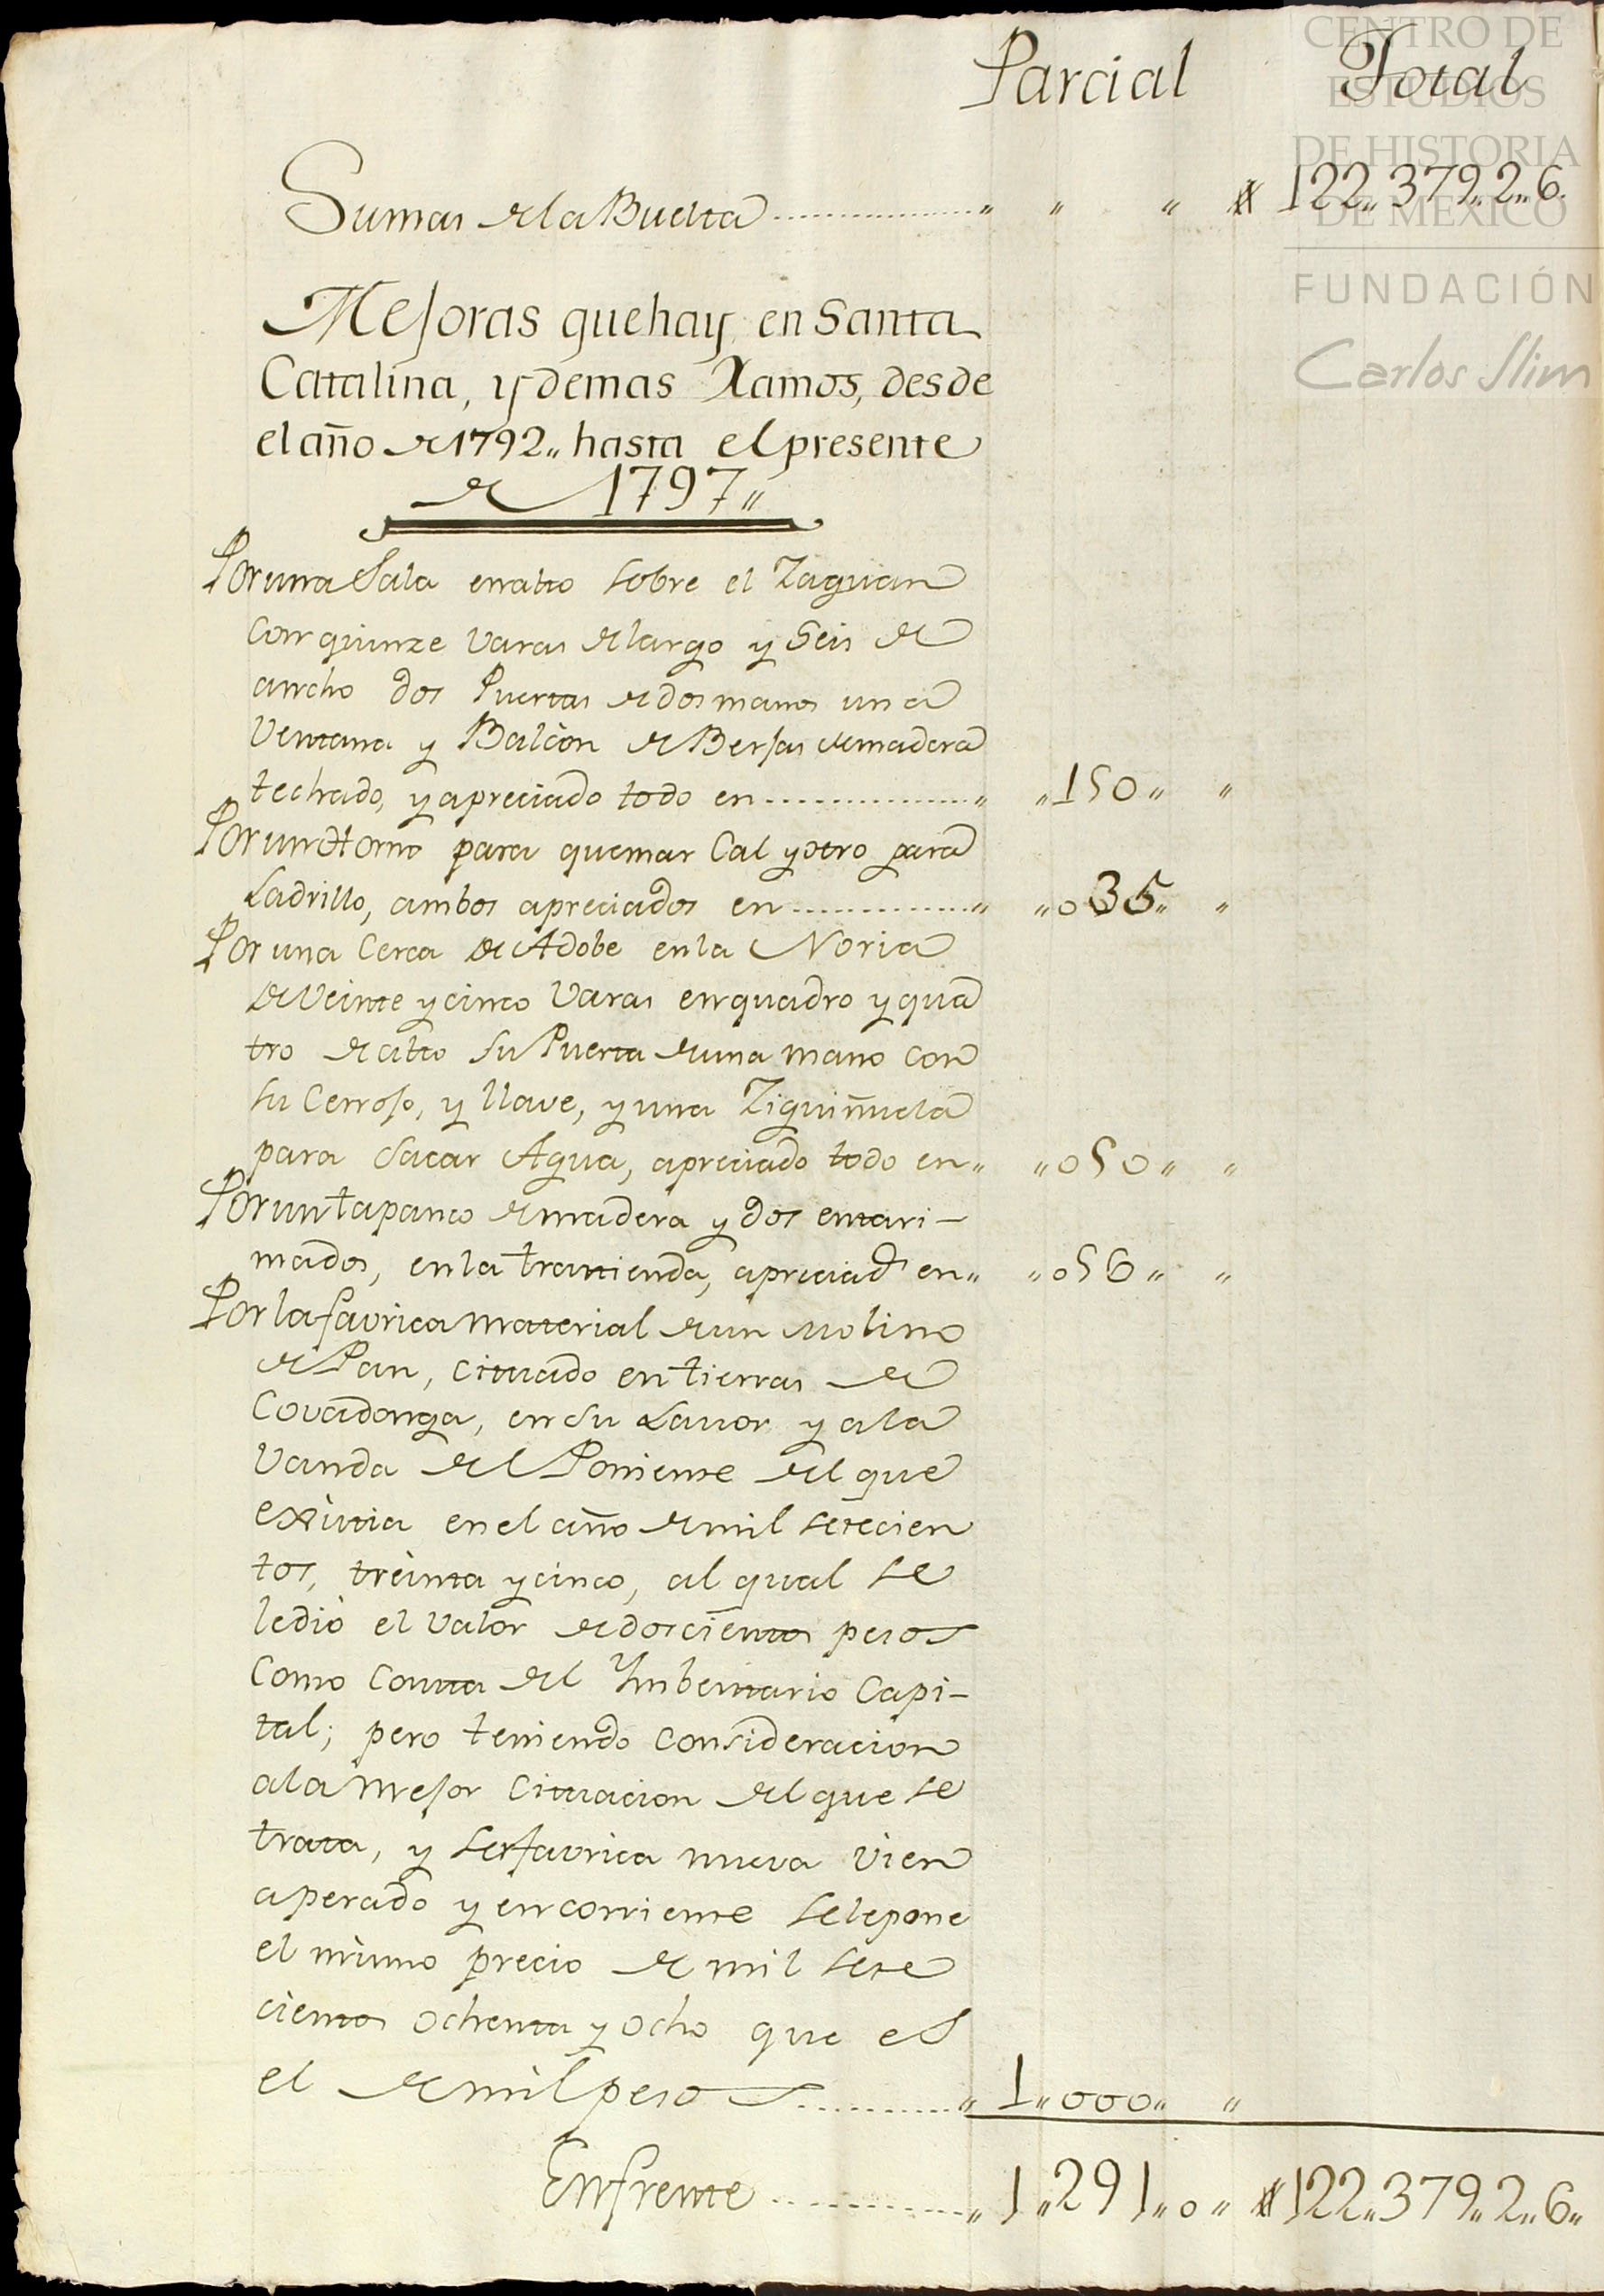 CENTRO DE
ESTUDIOS
DE HISTORIA
DE MÉXICO
FUNDACIÓN
Carlos Slim
Parcial Total
Sumas de la Buelta .................. „ „ „ 122„379„2„6.
Mejoras que hay en Santa
Catalina, y demas Ramos, desde
el año de 1792„ hasta el presente
de 1797„
Por una Sala en alto sobre el Zaguan
con quinze varas de largo y Seis de
ancho dos Puertas de dos manos una
Ventana y Balcòn de Berjas de madera
techado, y apreciado todo en .................. „ „150„ „
Por un Horno para quemar Cal y otro para
Ladrillo, ambos apreciados en ............... „ „035„ „
Por una Cerca de Adobe en la Noria
de Veinte y cinco Varas en quadro y qua
tro de alto su Puerta de una mano con
su Cerrojo, y llave, y una Ziguiñuela
para Sacar Agua, apreciado todo en„ „050„ „
Por un tapanco de madera y dos entari-
mados, en la trastienda, apreciad.s en„ „056„ „
Por la favrica material de un Molino
de Pan, cituado en tierras de
Covadonga, en su Lavor y a la
Vanda del Poniente del que
exìstia en el año de mil setecien
tos, treinta y cinco, al qual se
le diò el valor de doscientos pesos
Como Consta del Ymbentario Capi-
tal; pero teniendo Consideracion
a la mejor Cituacion del que se
trata, y ser favrica nueva vien
aperado y en corriente se le pone
el mismo precio de mil sete
cientos ochenta y ocho que es
el de mil pesos ............ „ 1„000„ „
Enfrente ............ „ 1„291„0„ 122„379„2„6„